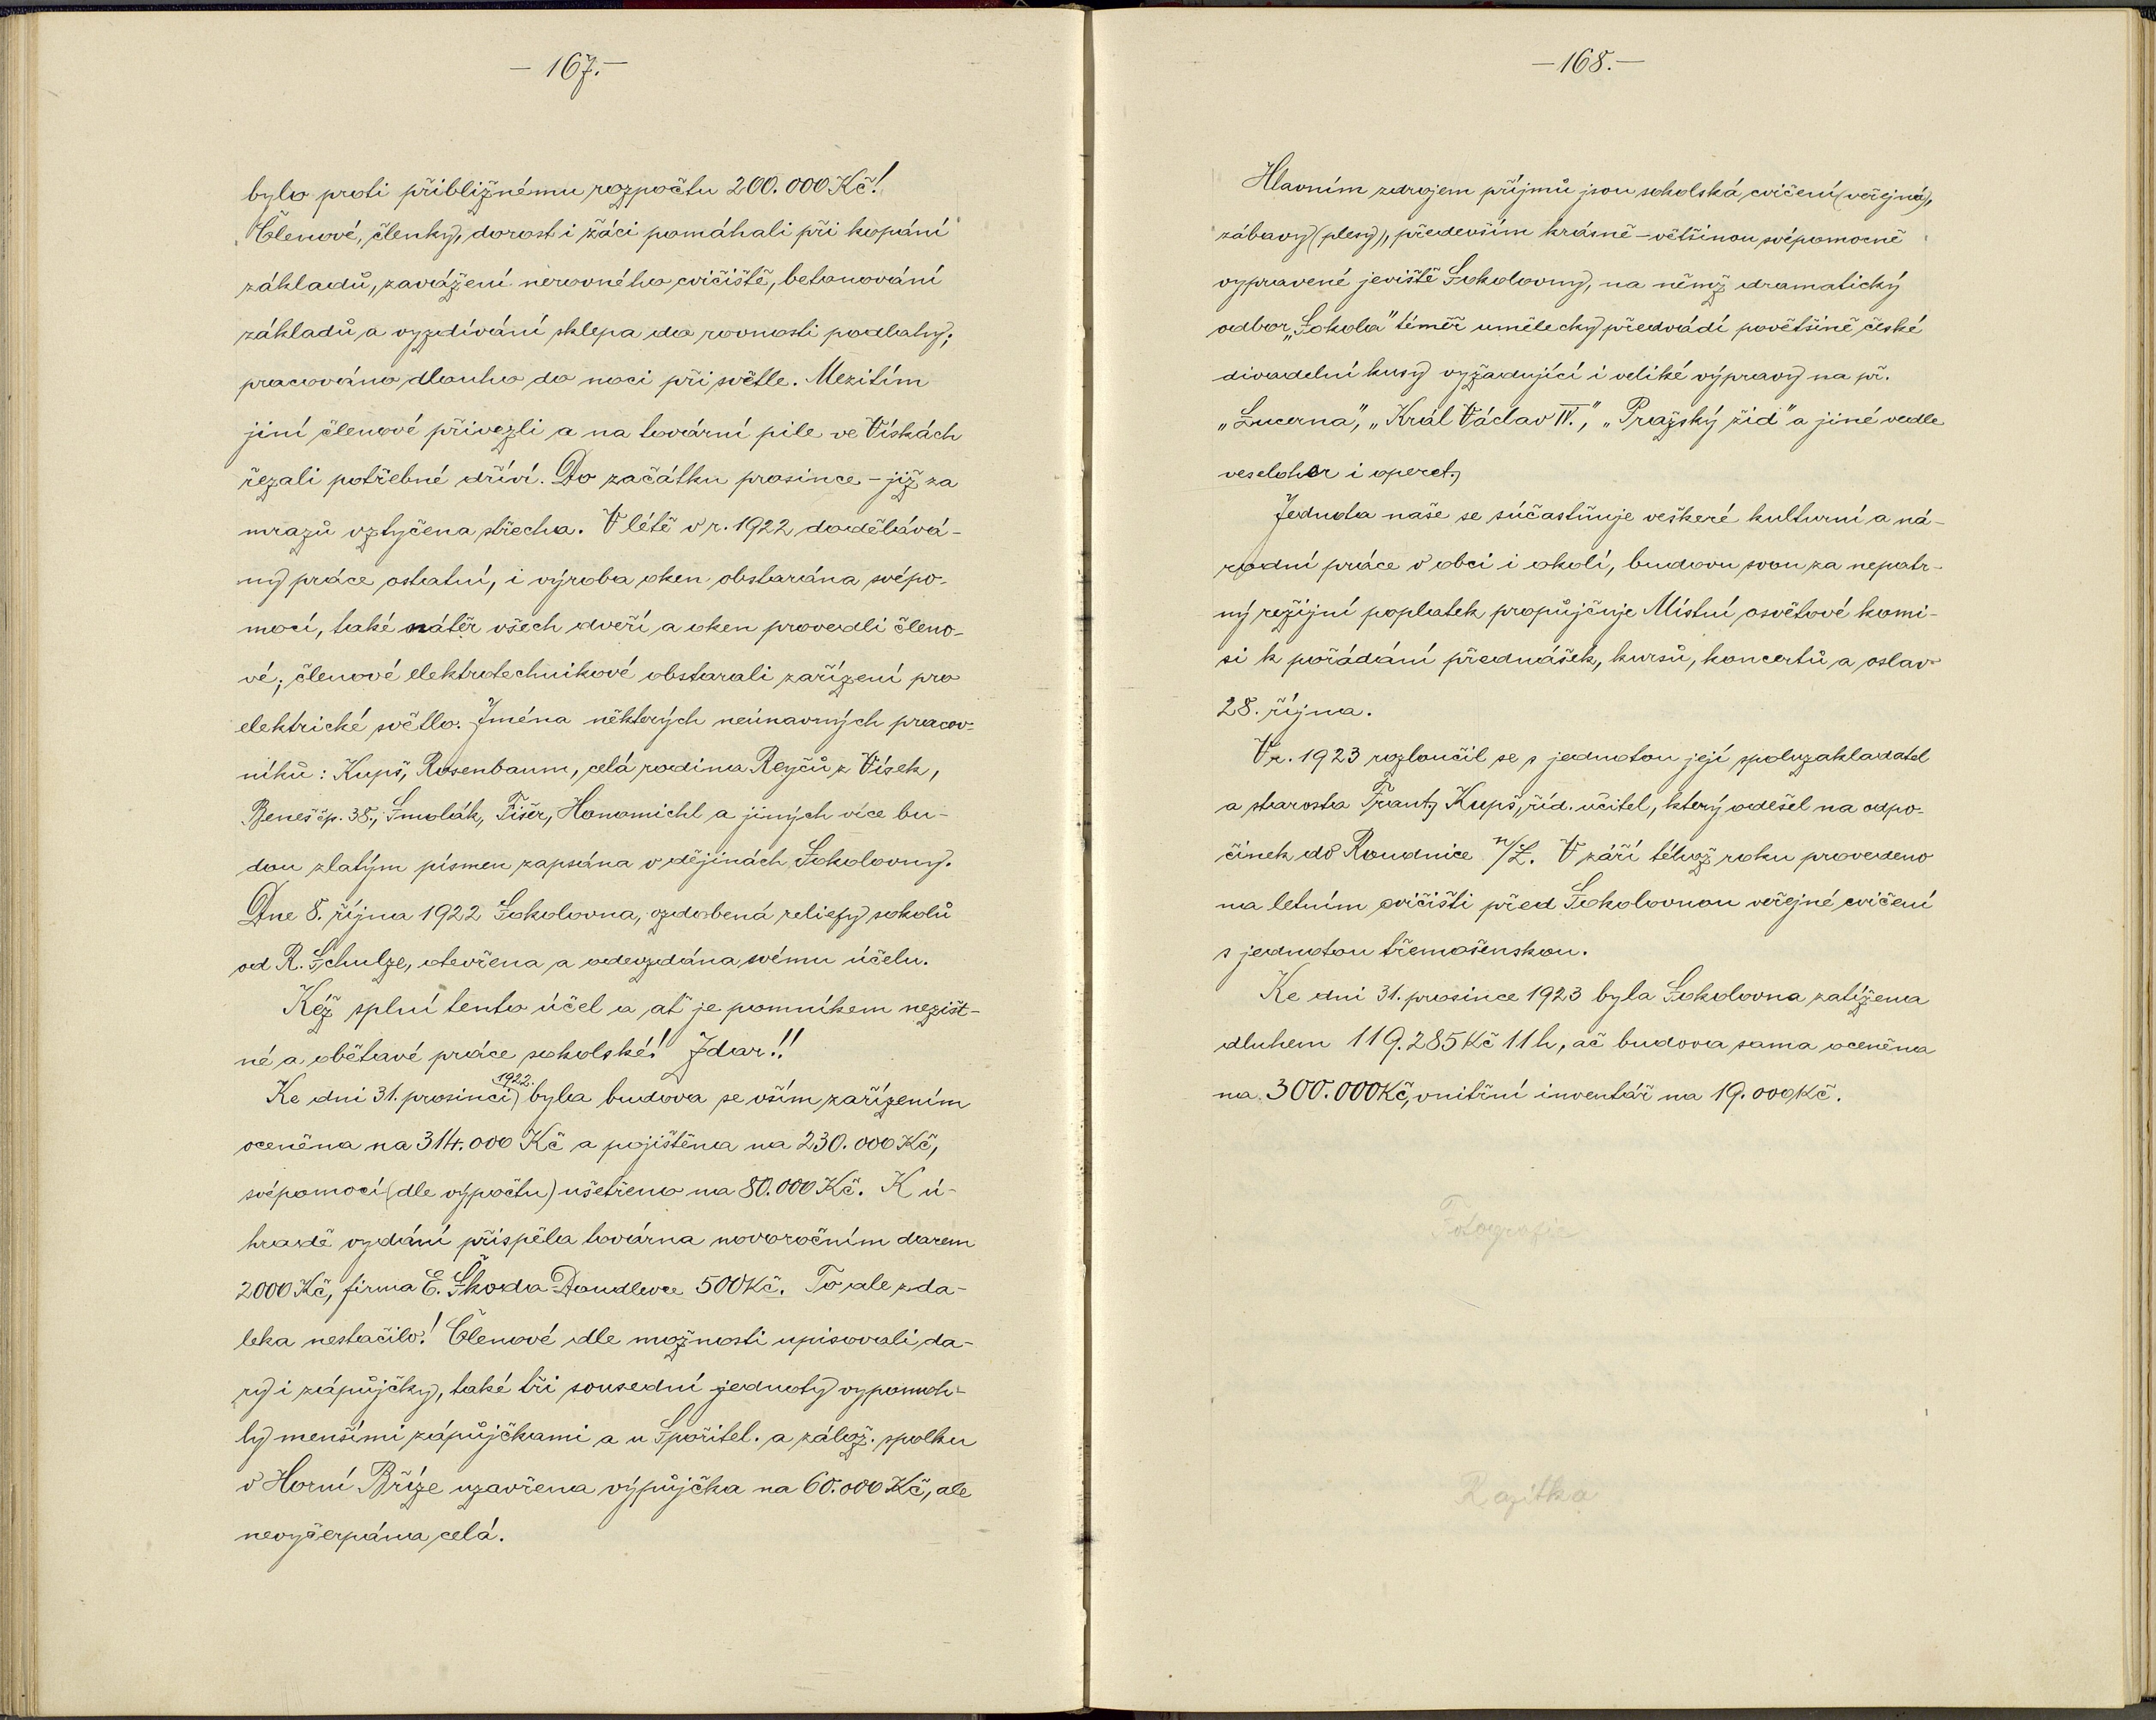 — 167. —
bylo proti přibližnému rozpočtu 200.000 Kč!
Členové, členky, dorost i žáci pomáhali při kopání
základů, zavážení nerovného cvičiště, betonování
základů a vyzdívání sklepa do rovnosti podlahy;
pracováno dlouho do noci při světle. Mezitím
jiní členové přivezli a na tovární pile ve Vískách
řezali potřebné dříví. Do začátku prosince – již za
mrazů vztyčena střecha. V létě v r. 1922 dodělává-
ny práce ostatní, i výroba oken obstarána svépo-
mocí, také nátěr všech dveří a oken provedli členo-
vé; členové elektrotechnikové obstarali zařízení pro
elektrické světlo. Jména některých neúnavných pracov-
níků: Kupš, Rosenbaum, celá rodina Reyčů z Vísek,
Beneš čp. 38., Smolák, Fišer, Honomichl a jiných více bu-
dou zlatým písmen zapsána v dějinách Sokolovny.
Dne 8. října 1922 Sokolovna, ozdobená reliefy sokolů
od R. Schulze, otevřena a odevzdána svému účelu.
Kéž splní tento účel a ať je pomníkem nezišt-
né a obětavé práce sokolské! Zdar!!
Ke dni 31. prosinci 1922. byla budova se vším zařízením
oceněna na 314.000 Kč a pojištěna na 230.000 Kč,
svépomocí (dle výpočtu) ušetřeno na 80.000 Kč. K ú-
hradě vydání přispěla továrna novoročním darem
2000 Kč, firma E. Škoda Doudlevce 500 Kč. To ale zda-
leka nestačilo! Členové dle možnosti upisovali da-
ry i zápůjčky, také tři sousední jednoty vypomoh-
ly menšími zápůjčkami a u Spořitel. a zálož. spolku
v Horní Bříze uzavřena výpůjčka na 60.000 Kč, ale
nevyčerpána celá.
— 168. —
Hlavním zdrojem příjmů jsou sokolská cvičení (veřejná),
zábavy (plesy), především krásně – většinou svépomocně
vypravené jeviště Sokolovny, na němž dramatický
odbor „Sokola" téměř umělecky předvádí povětšině české
divadelní kusy vyžadující i veliké výpravy na př.
„Lucerna", „Král Václav IV.", „Pražský žid" a jiné vedle
veseloher i operet.
Jednota naše se súčastňuje veškeré kulturní a ná-
rodní práce v obci i okolí, budovu svou za nepatr-
ný režijní poplatek propůjčuje Místní osvětové komi-
si k pořádání přednášek, kursů, koncertů a oslav
28. října.
V r. 1923 rozloučil se s jednotou její spoluzakladatel
a starosta Frant. Kupš, říd. učitel, který odešel na odpo-
činek do Roudnice n/L. V září téhož roku provedeno
na letním cvičišti před Sokolovnou veřejné cvičení
s jednotou třemošenskou.
Ke dni 31. prosince 1923 byla Sokolovna zatížena
dluhem 119.285 Kč 11 h, ač budova sama oceněna
na 300.000 Kč, vnitřní inventář na 19.000 Kč.
Fotografie
Razítka